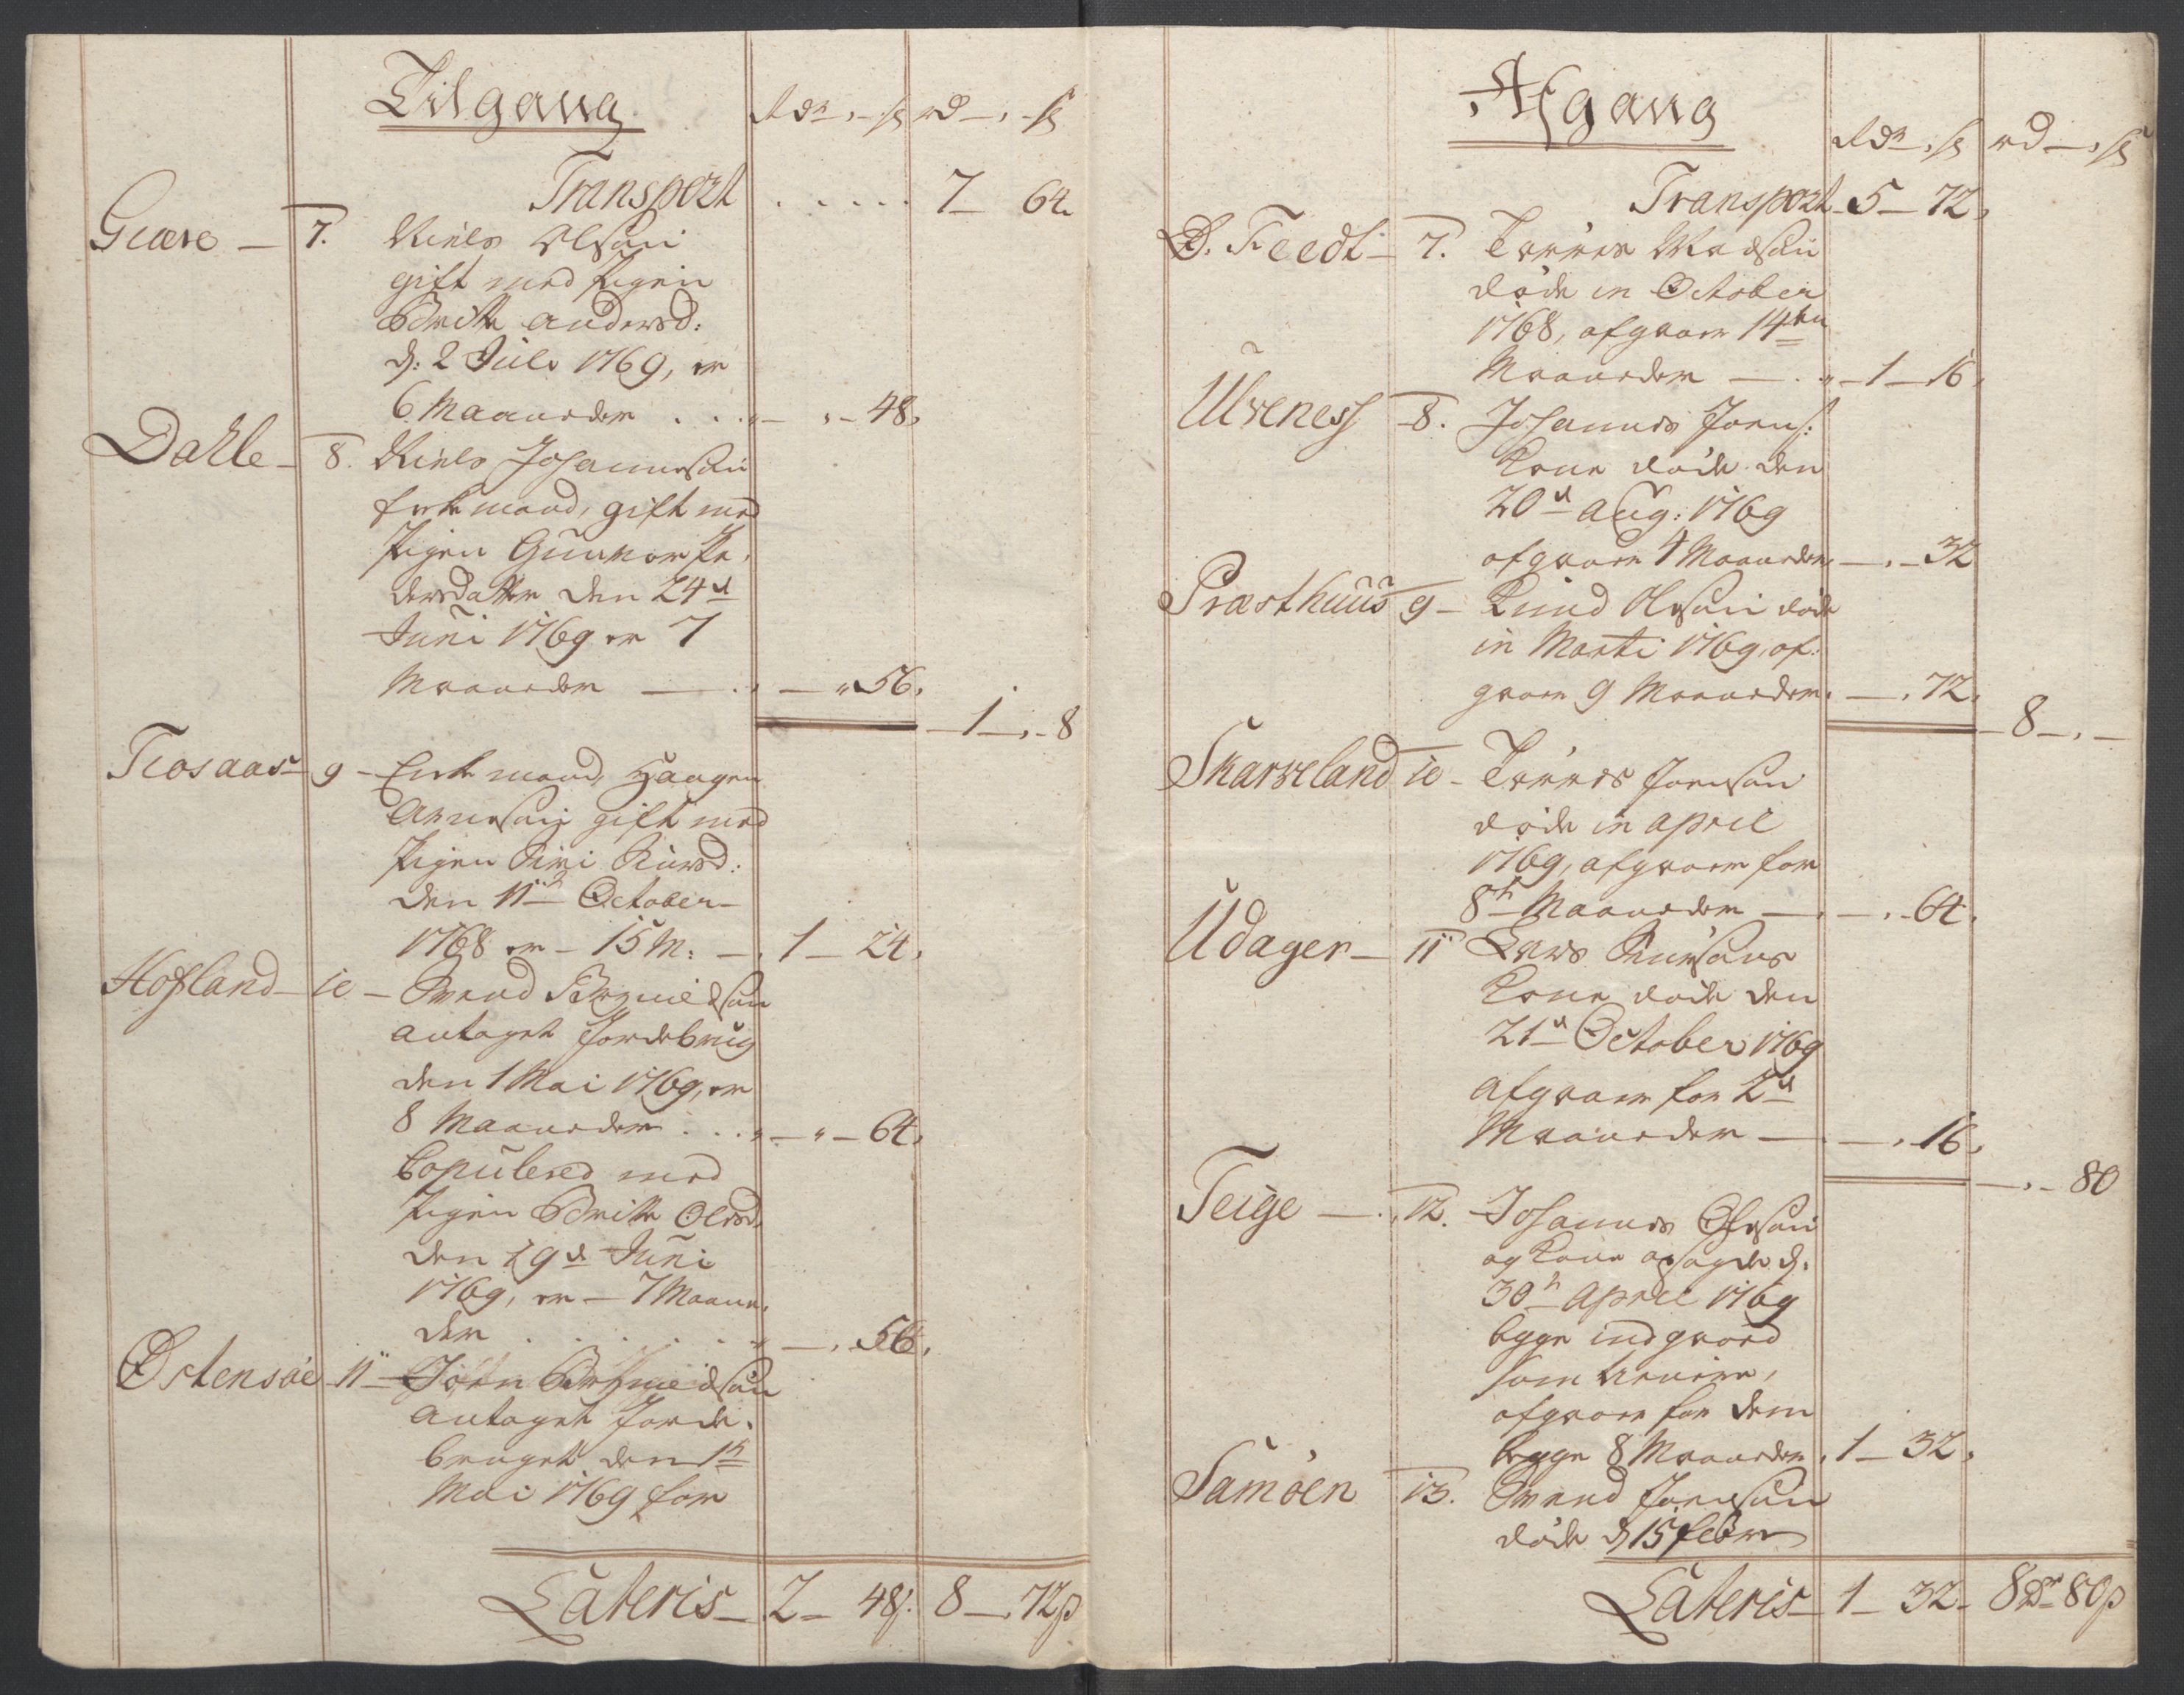 Tilgang
Rdr , ß rd , ß
Transport ..... 7 64.
Giære 7. Niels Olsøn
gift med Pigen
Britte Andersd:
d: 2 Juli 1769, er
6 Maaneder . . . " , 48.
Dahle 8. Niels Johannesøn
Enkemand, gift med
Pigen Gunvor Pe,
dersdatter den 24d
Juni 1769 er 7
Maaneder " 56.
1 , 8
Tiosaas 9 Enkemand, Haagen
Arnesøn gift med
Pigen Siri
den 11te October
1768 er 15 M: 1 24.
Hofland 10 Svend Brynnildsøn
antaget Jordebrug
den 1 Mai 1769, er
8 Maaneder . . . " " 64.
Copulered med
Pigen Britte Olesd.
den 29de Juni
1769, er 7 Maane,
der . . . . . , 56.
Østensøe 11 Jørn Brynnildsøn
antaget Jorde,
bruget den 1te
Mai 1769 for
Lateris 2 48ß. 8 72ß
Afgang
Rdr , ß rd , ß
Transport 5 72,
Ø. Tvedt 7. Torres Madsøn
døde in October
1768, afgaaer 14ten
Maaneder . " 1 16,
Ulvenes 8. Johannes Joens:
Kone døde den
20d Aug: 1769
afgaaer 4 Maaneder , 32
Præsthuus 9 Knud Olesøn døde
in Marti 1769, af:
gaaer 9 Maaneder. , 72,
8 ,
Skarveland 10 Torres Joensøn
døde in April
1769, afgaaer for
8te Maaneder , 64.
Udager 11 Lars Knudsøns
Kone døde den
21d October 1769
afgaaer for 2d
Maaneder , 16,
, 80
Teige 12. Johannes Olesøn
og Kone opsagde d.
30te April 1769
begge indgaaed
som
afgaaer for dem
begge 8 Maaneder , 1 32.
Samøen 13. Svend Joensøn
døde d 15 Febr
Lateris 1 32 8rd 80ß